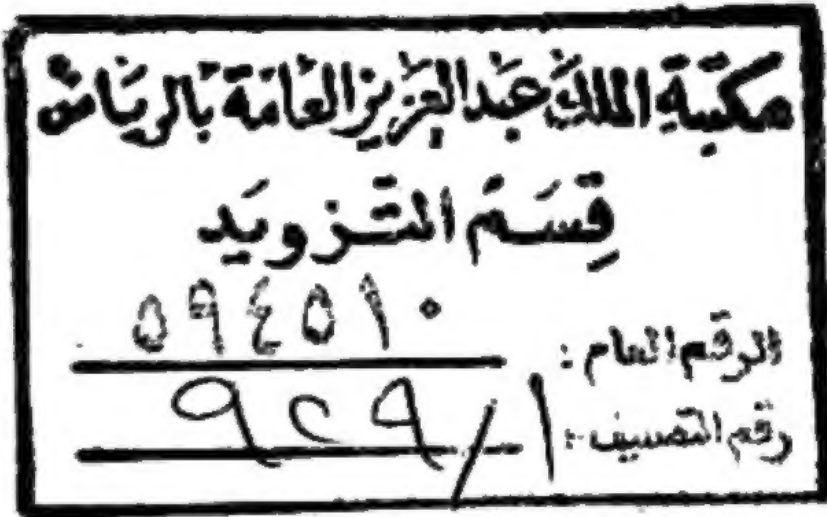 مكتبة الملك عبد العزيز العامة بالرياض
قسم التزويد
الرقم العام: ٥٩٤٥١٠
رقم التصنيف: ٩٢٩/١